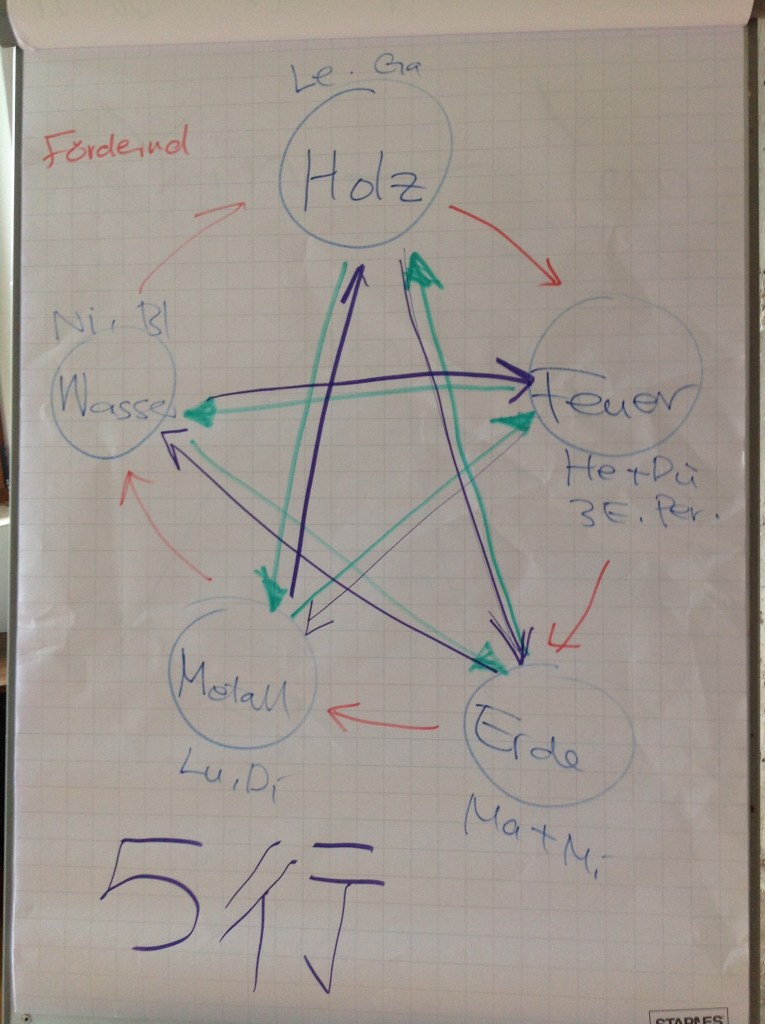 Le. Ga
Fördernd
Holz
Ni, Bl
Wasser
Feuer
He + Dü
3E. Per.
Metall
Lu, Di
Erde
Ma + Mi
5行
STAPLES